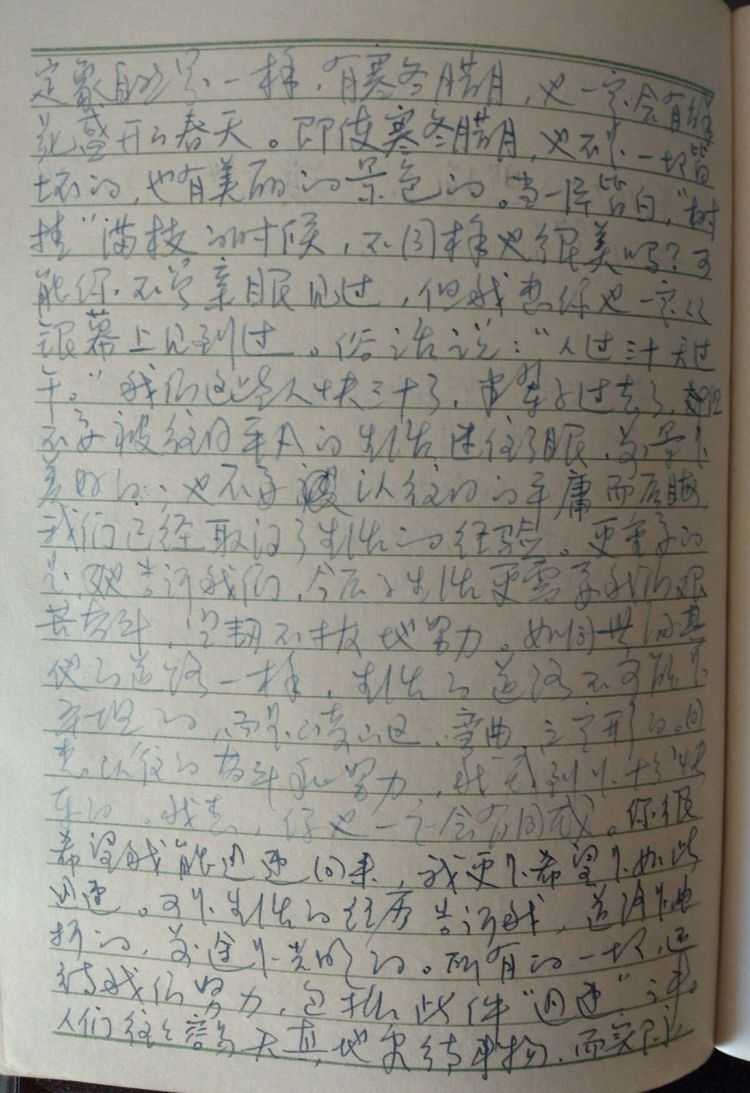 定象自然界一样，有寒冬腊月，也一定会有
花盛开的春天。即使寒冬腊月，也不是一切皆
坏的，也有美丽的景色的。当一片皆白，“树
挂”满枝的时候，不同样也很美吗？可
能你不曾亲眼见过，但我想你也一定从
银幕上见到过。俗话说：“人过三十天过
午。”我们这些人快三十了，半辈子过去了，
不要被往日平凡的生活迷住了眼，前景是
美好的；也不要认往日的平庸而后悔，
我们已经取得了生活的经验。更重要的
是，她告诉我们，今后的生活更需要我们艰
苦奋斗，坚韧不拔地努力。如同世间其
他的道路一样，生活的道路不可能是
平坦的，而是崎岖、弯曲、之字形的。回
想以往的奋斗和努力，我感到是十分愉
快的，我想，你也一定会有同感。你很
希望我能迅速回来，我更是希望是如此
迅速。可是生活的经历告诉我，道路是曲
折的，前途是光明的。所有的一切，还
待我们努力，包括此件“迅速”之事。
人们往往容易天真地看待事物，而实际